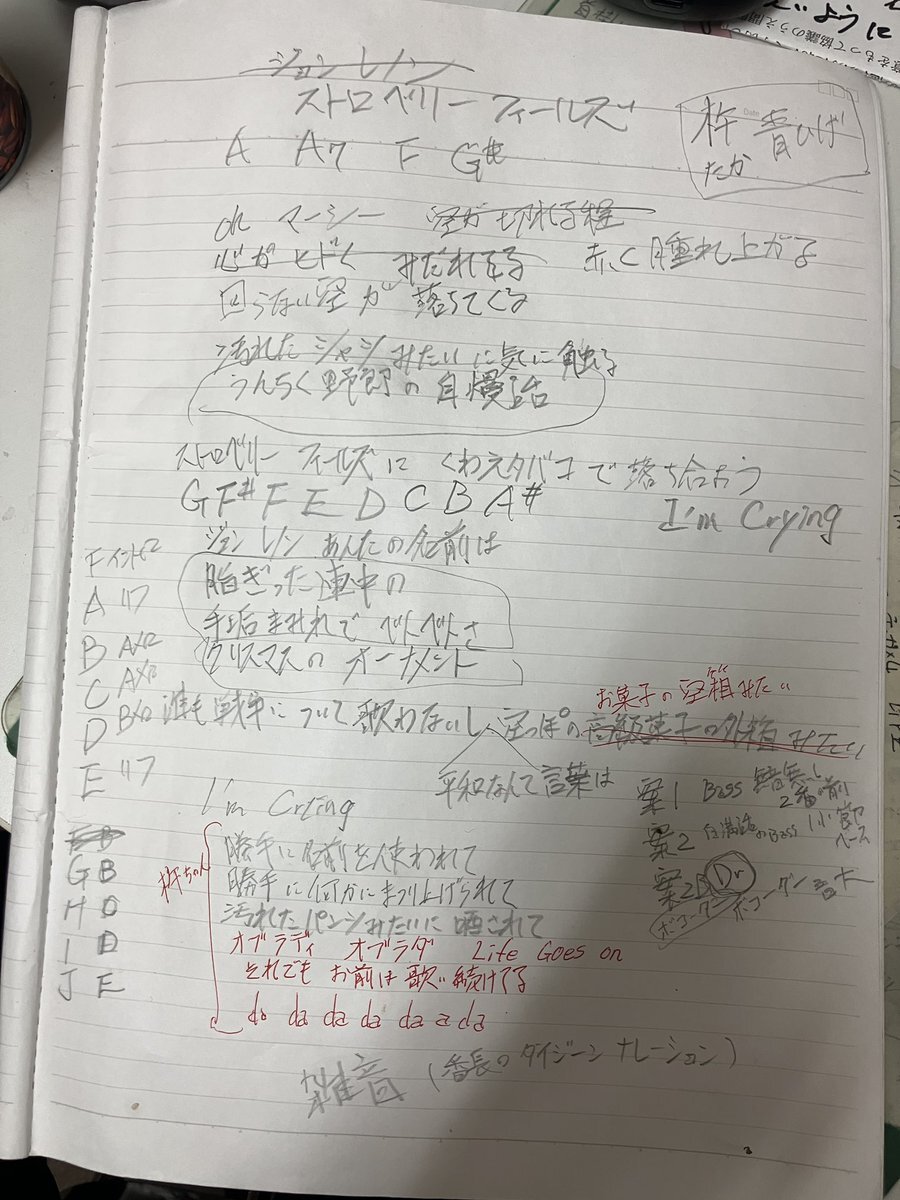 ジョン レノン
ストロベリー フィールズ
杵 青ひげ
たか
A A7 F G#
oh マーシー 空が切れる程
心がヒドく みだれてる 赤く腫れ上がる
回らない空が 落ちてくる
汚れたシャシみたいに気に触る
うんちく野郎の自慢話
ストロベリー フィールズに くわえタバコで落ち合おう
G F# F E D C B A#
I'm Crying
ジョン レノン あんたの名前は
脂ぎった連中の
手垢まみれで ベトベトさ
クリスマスの オーナメント
お菓子の空箱みたい
誰も戦争について歌わないし 空っぽの高級菓子の外箱みたい
平和なんて言葉は
I'm Crting
F イントロ
A リフ
B Aメロ
C Aメロ
D Bメロ
E リフ
G B
H D
I D
J E
案1 Bass
2番の前
小節
ベース
案2 自慢話のBass
案2 Dr
ボコーダー ボコーダー
杵ちゃん
勝手に名前を使われて
勝手に何かにまつり上げられて
汚れたパンツみたいに晒されて
オブラディ オブラダ Life Goes on
それでも お前は歌い続けてる
do da da da da a da
雑音 (番長のダイジーン ナレーション)